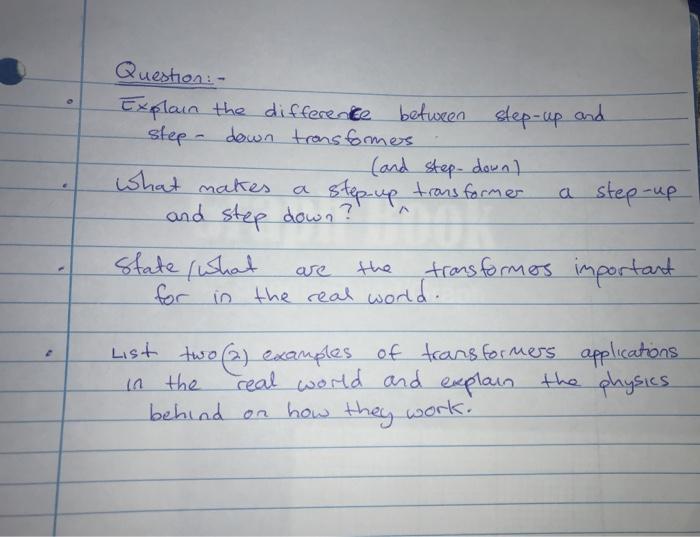 Question:-
Explain the difference between step-up and
step-down transformers
(and step-down)
What makes a step-up ^ transformer a step-up
and step down?
State/what are the transformers important
for in the real world.
List two(2) examples of transformers applications
in the real world and explain the physics
behind on how they work.